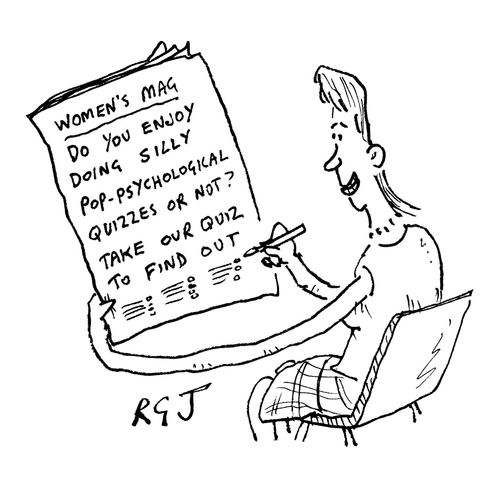 WOMEN'S MAG
DO YOU ENJOY
DOING SILLY
POP-PSYCHOLOGICAL
QUIZZES OR NOT?
TAKE OUR QUIZ
TO FIND OUT
RGJ